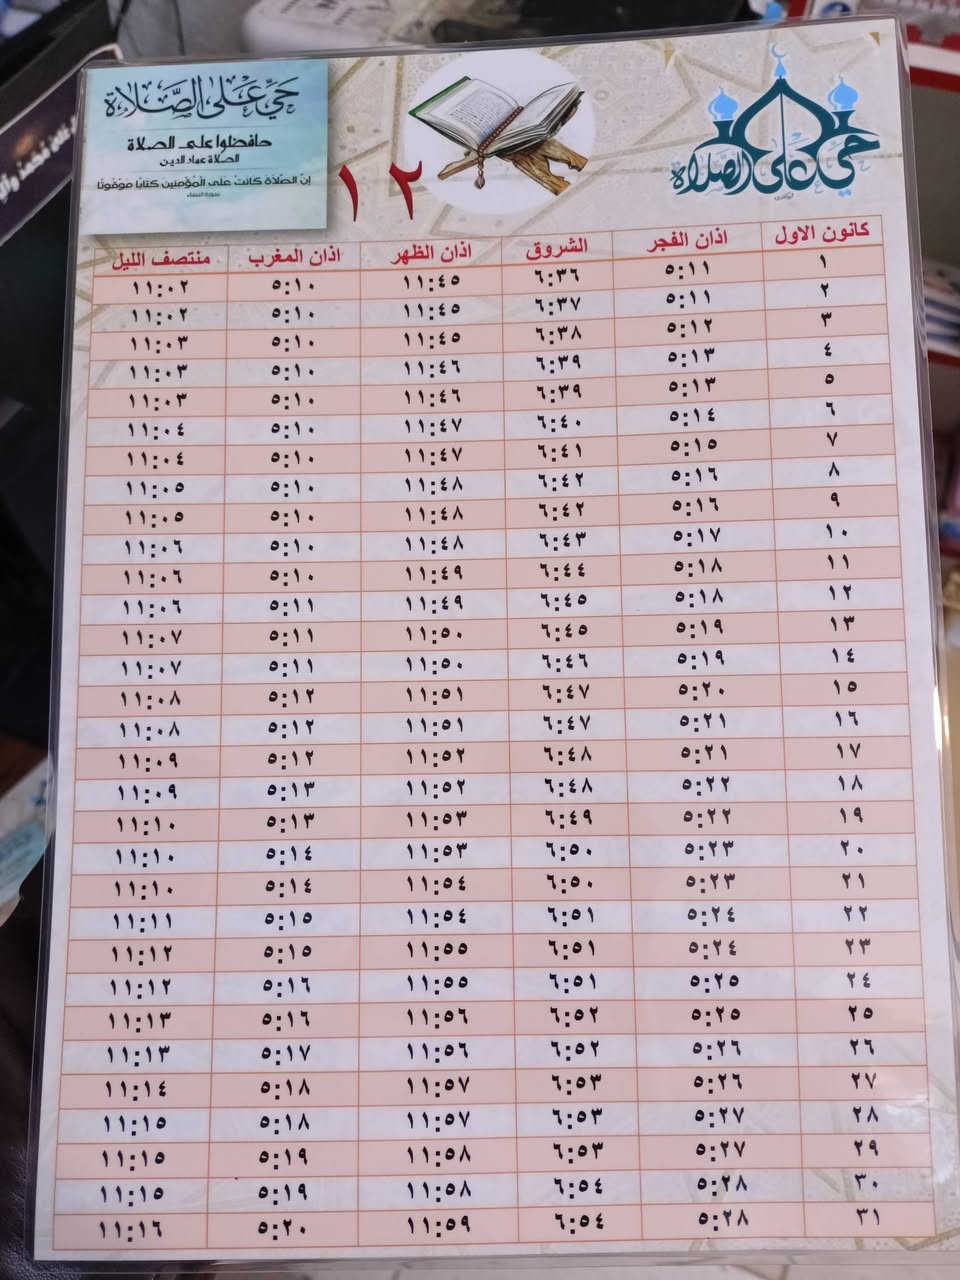 حي على الصلاة
حافظوا على الصلاة
الصلاة عماد الدين
إن الصلاة كانت على المؤمنين كتابا موقوتا
سورة النساء
١٢
حي على الصلاة
كانون الاول اذان الفجر الشروق اذان الظهر اذان المغرب منتصف الليل
١ ٥:١١ ٦:٣٦ ١١:٤٥ ٥:١٠ ١١:٠٢
٢ ٥:١١ ٦:٣٧ ١١:٤٥ ٥:١٠ ١١:٠٢
٣ ٥:١٢ ٦:٣٨ ١١:٤٥ ٥:١٠ ١١:٠٣
٤ ٥:١٣ ٦:٣٩ ١١:٤٦ ٥:١٠ ١١:٠٣
٥ ٥:١٣ ٦:٣٩ ١١:٤٦ ٥:١٠ ١١:٠٣
٦ ٥:١٤ ٦:٤٠ ١١:٤٧ ٥:١٠ ١١:٠٤
٧ ٥:١٥ ٦:٤١ ١١:٤٧ ٥:١٠ ١١:٠٤
٨ ٥:١٦ ٦:٤٢ ١١:٤٨ ٥:١٠ ١١:٠٥
٩ ٥:١٦ ٦:٤٢ ١١:٤٨ ٥:١٠ ١١:٠٥
١٠ ٥:١٧ ٦:٤٣ ١١:٤٨ ٥:١٠ ١١:٠٦
١١ ٥:١٨ ٦:٤٤ ١١:٤٩ ٥:١٠ ١١:٠٦
١٢ ٥:١٨ ٦:٤٥ ١١:٤٩ ٥:١١ ١١:٠٦
١٣ ٥:١٩ ٦:٤٥ ١١:٥٠ ٥:١١ ١١:٠٧
١٤ ٥:١٩ ٦:٤٦ ١١:٥٠ ٥:١١ ١١:٠٧
١٥ ٥:٢٠ ٦:٤٧ ١١:٥١ ٥:١٢ ١١:٠٨
١٦ ٥:٢١ ٦:٤٧ ١١:٥١ ٥:١٢ ١١:٠٨
١٧ ٥:٢١ ٦:٤٨ ١١:٥٢ ٥:١٢ ١١:٠٩
١٨ ٥:٢٢ ٦:٤٨ ١١:٥٢ ٥:١٣ ١١:٠٩
١٩ ٥:٢٢ ٦:٤٩ ١١:٥٣ ٥:١٣ ١١:١٠
٢٠ ٥:٢٣ ٦:٥٠ ١١:٥٣ ٥:١٤ ١١:١٠
٢١ ٥:٢٣ ٦:٥٠ ١١:٥٤ ٥:١٤ ١١:١٠
٢٢ ٥:٢٤ ٦:٥١ ١١:٥٤ ٥:١٥ ١١:١١
٢٣ ٥:٢٤ ٦:٥١ ١١:٥٥ ٥:١٥ ١١:١٢
٢٤ ٥:٢٥ ٦:٥١ ١١:٥٥ ٥:١٦ ١١:١٢
٢٥ ٥:٢٥ ٦:٥٢ ١١:٥٦ ٥:١٦ ١١:١٣
٢٦ ٥:٢٦ ٦:٥٢ ١١:٥٦ ٥:١٧ ١١:١٣
٢٧ ٥:٢٦ ٦:٥٣ ١١:٥٧ ٥:١٨ ١١:١٤
٢٨ ٥:٢٧ ٦:٥٣ ١١:٥٧ ٥:١٨ ١١:١٥
٢٩ ٥:٢٧ ٦:٥٣ ١١:٥٨ ٥:١٩ ١١:١٥
٣٠ ٥:٢٨ ٦:٥٤ ١١:٥٨ ٥:١٩ ١١:١٥
٣١ ٥:٢٨ ٦:٥٤ ١١:٥٩ ٥:٢٠ ١١:١٦